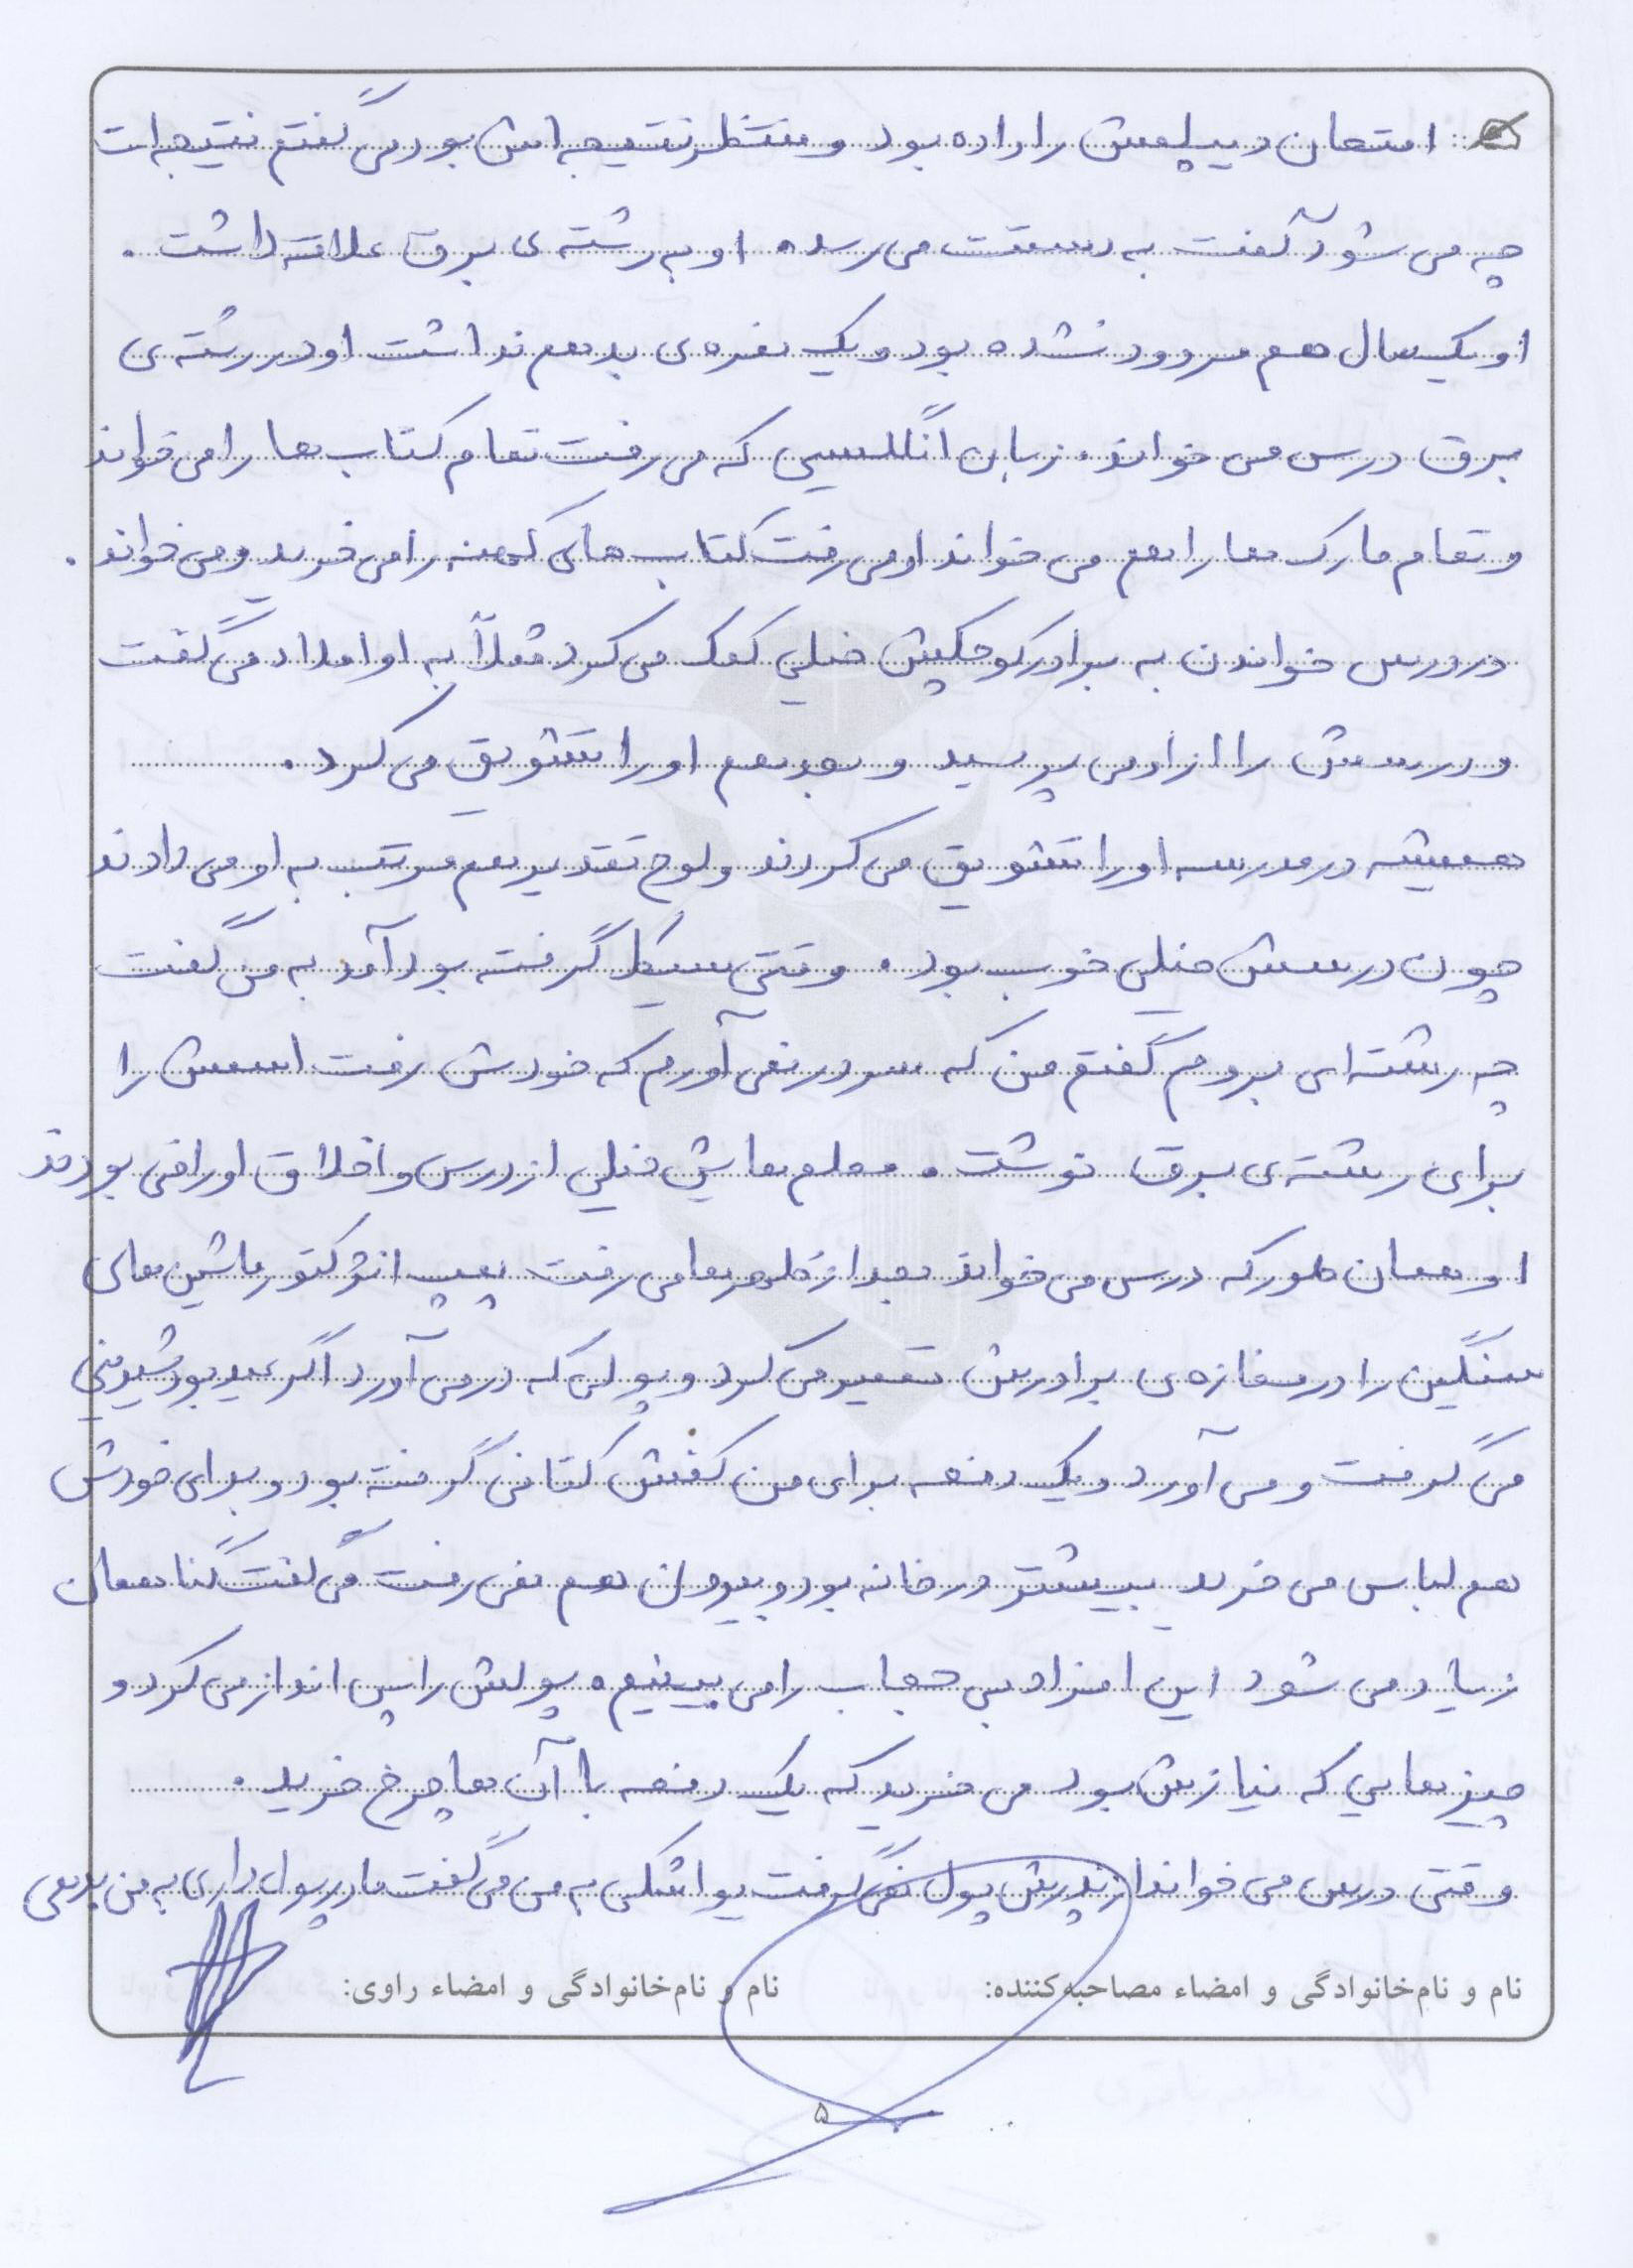 امتحان دیپلمش را داده بود و منتظر نتیجه اش بود می گفتم نتیجه ات
چه می شود آ گفت به دستت می رسد. او به رشته ی برق علاقه داشت.
او یک سال هم مردود نشده بود و یک نمره ی بد هم نداشت او در رشته ی
برق درس می خواند. زبان انگلسیی که می رفت تمام کتاب ها را می خواند
و تمام مارک ها را هم می خواند او می رفت کتاب های کهنه را می خرید و می خواند.
در درس خواندن به برادر کوچکیش خیلی کمک می کرد مثلاً به او املا د می گفت
و درسش را از او می پرسید و بعد هم او را تشویق می کرد.
همیشه در مدرسه او را تشویق می کردند و لوح تقدیر هم مرتب به او می دادند
چون درسش خیلی خوب بود. وقتی سیکل گرفته بود آمد به من گفت
چه رشته ای بروم گفتم من که سر در نمی آورم که خودش رفت اسمش را
برای رشته ی برق نوشت. معلم هایش خیلی از درس و اخلاق او راضی بودند
او همان طور که درس می خواند بعد از ظهرها می رفت پمپ انژکتور ماشین های
سنگین را در مغازه ی برادرش تعمیر می کرد و پولی که در می آورد اگر عید بود شیرینی
می گرفت و می آورد و یک دفعه برای من کفش کتانی گرفته بود و برای خودش
هم لباس می خرید بیشتر در خانه بود و بیرون هم نمی رفت می گفت گناهمان
زیاد می شود این افراد بی حجاب را می بینیم. پولش را پس انداز می کرد و
چیزهایی که نیازش بود می خرید که یک دفعه با آن ها چرخ خرید.
وقتی درس می خواند از پدرش پول نمی گرفت یواشکی به من می گفت مادر پول داری به من بدهی
نام و نام‌خانوادگی و امضاء مصاحبه‌کننده: نام و نام‌خانوادگی و امضاء راوی:
۵